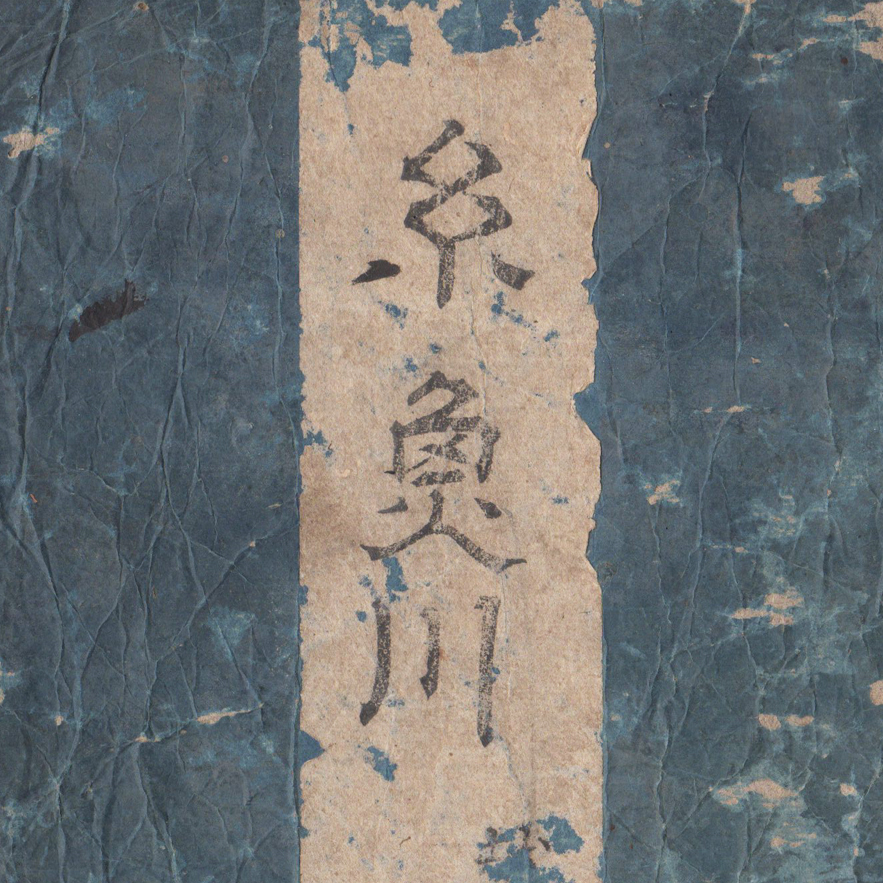 糸魚川